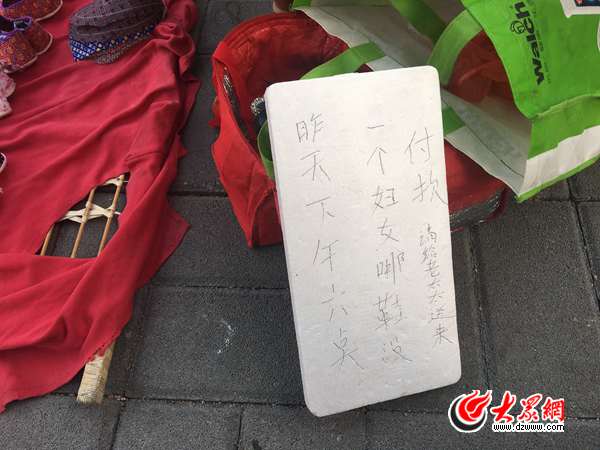 昨天下午六点
一个妇女哪鞋没
付款
请给老太太送来
大眾網
www.dzwww.com